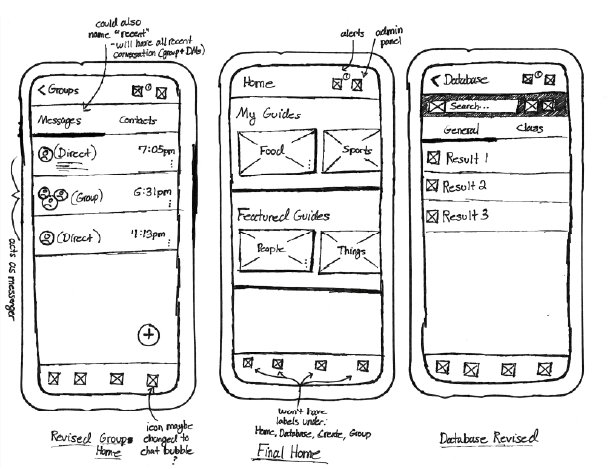 could also
name "recent"
-will have all recent
conversation (group + DMs)
< Groups
Messages
Contacts
(Direct)
7:05pm
(Group)
6:31pm
(Direct)
1:13pm
acts as messager
+
icon maybe
changed to
chat bubble
?
Revised Groups
Home
alerts
admin
panel
Home
My Guides
Food
Sports
Featured Guides
People
Things
won't have
labels under:
Home, Database, Create, Group
Final Home
< Database
Search...
General
Class
Result 1
Result 2
Result 3
Database Revised